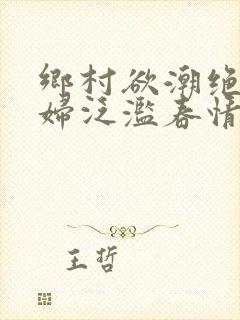 鄉村欲潮绝
婦泛滥春情
王哲